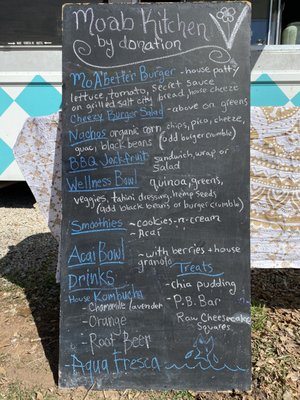 Moab Kitchen
by donation
Mo'A'better Burger - house patty
lettuce, tomato, secret sauce
on grilled salt city bread, house cheeze
Cheezy Burger Salad - above on greens
Nachos organic corn chips, pico, cheeze,
guac, black beans (add burger crumble)
BBQ Jackfruit sandwich, wrap or
salad
Wellness Bowl quinoa, greens,
veggies, tahini dressing, hemp seeds
(add black beans or burger crumble)
Smoothies ~ cookies-n-cream
~ Acai
Açaí Bowl ~ with berries + house
granola
Drinks
House Kombucha
- Chamomile/lavender
- Orange
- Root Beer
- Agua Fresca
Treats
~ chia pudding
~ P.B. Bar
~ Raw Cheesecake
Squares